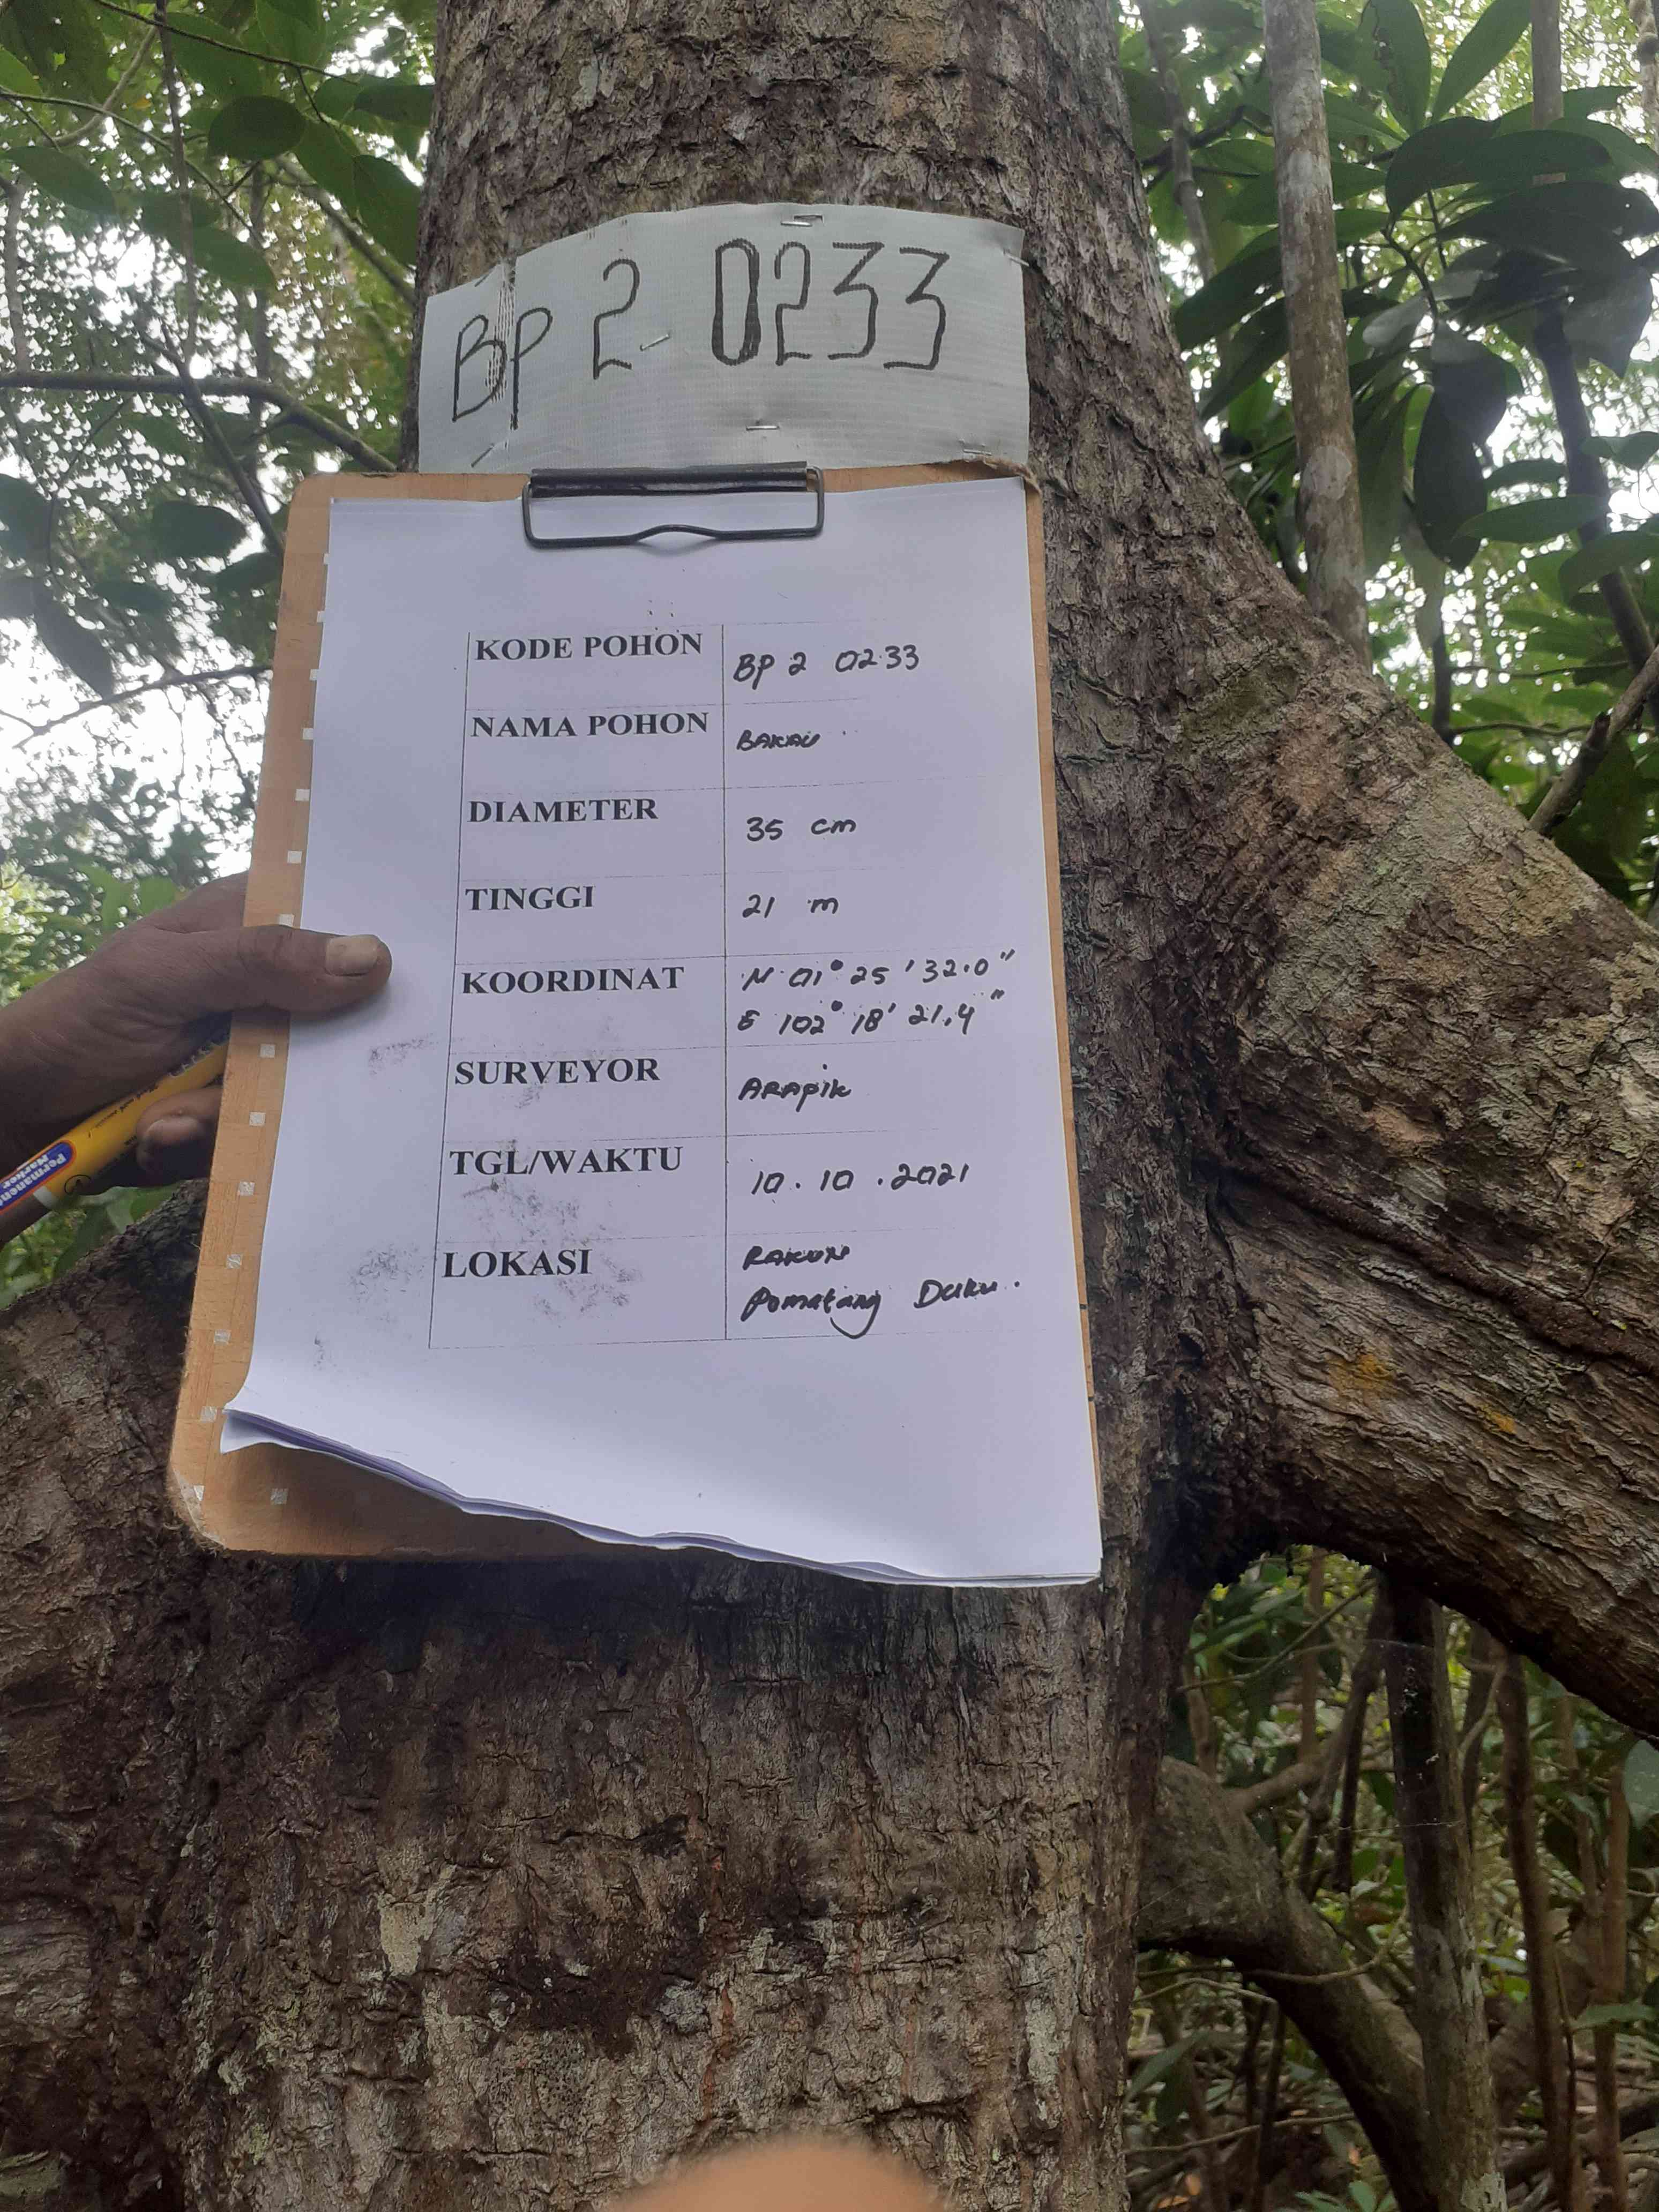 BP 2 0233
KODE POHON BP 2 0233
NAMA POHON BAKAU
DIAMETER 35 cm
TINGGI 21 m
KOORDINAT N 01° 25' 32.0"
E 102° 18' 21,4"
SURVEYOR ARAPIK
TGL/WAKTU 10.10.2021
LOKASI
Pematang Duku.
Permanent
Marker